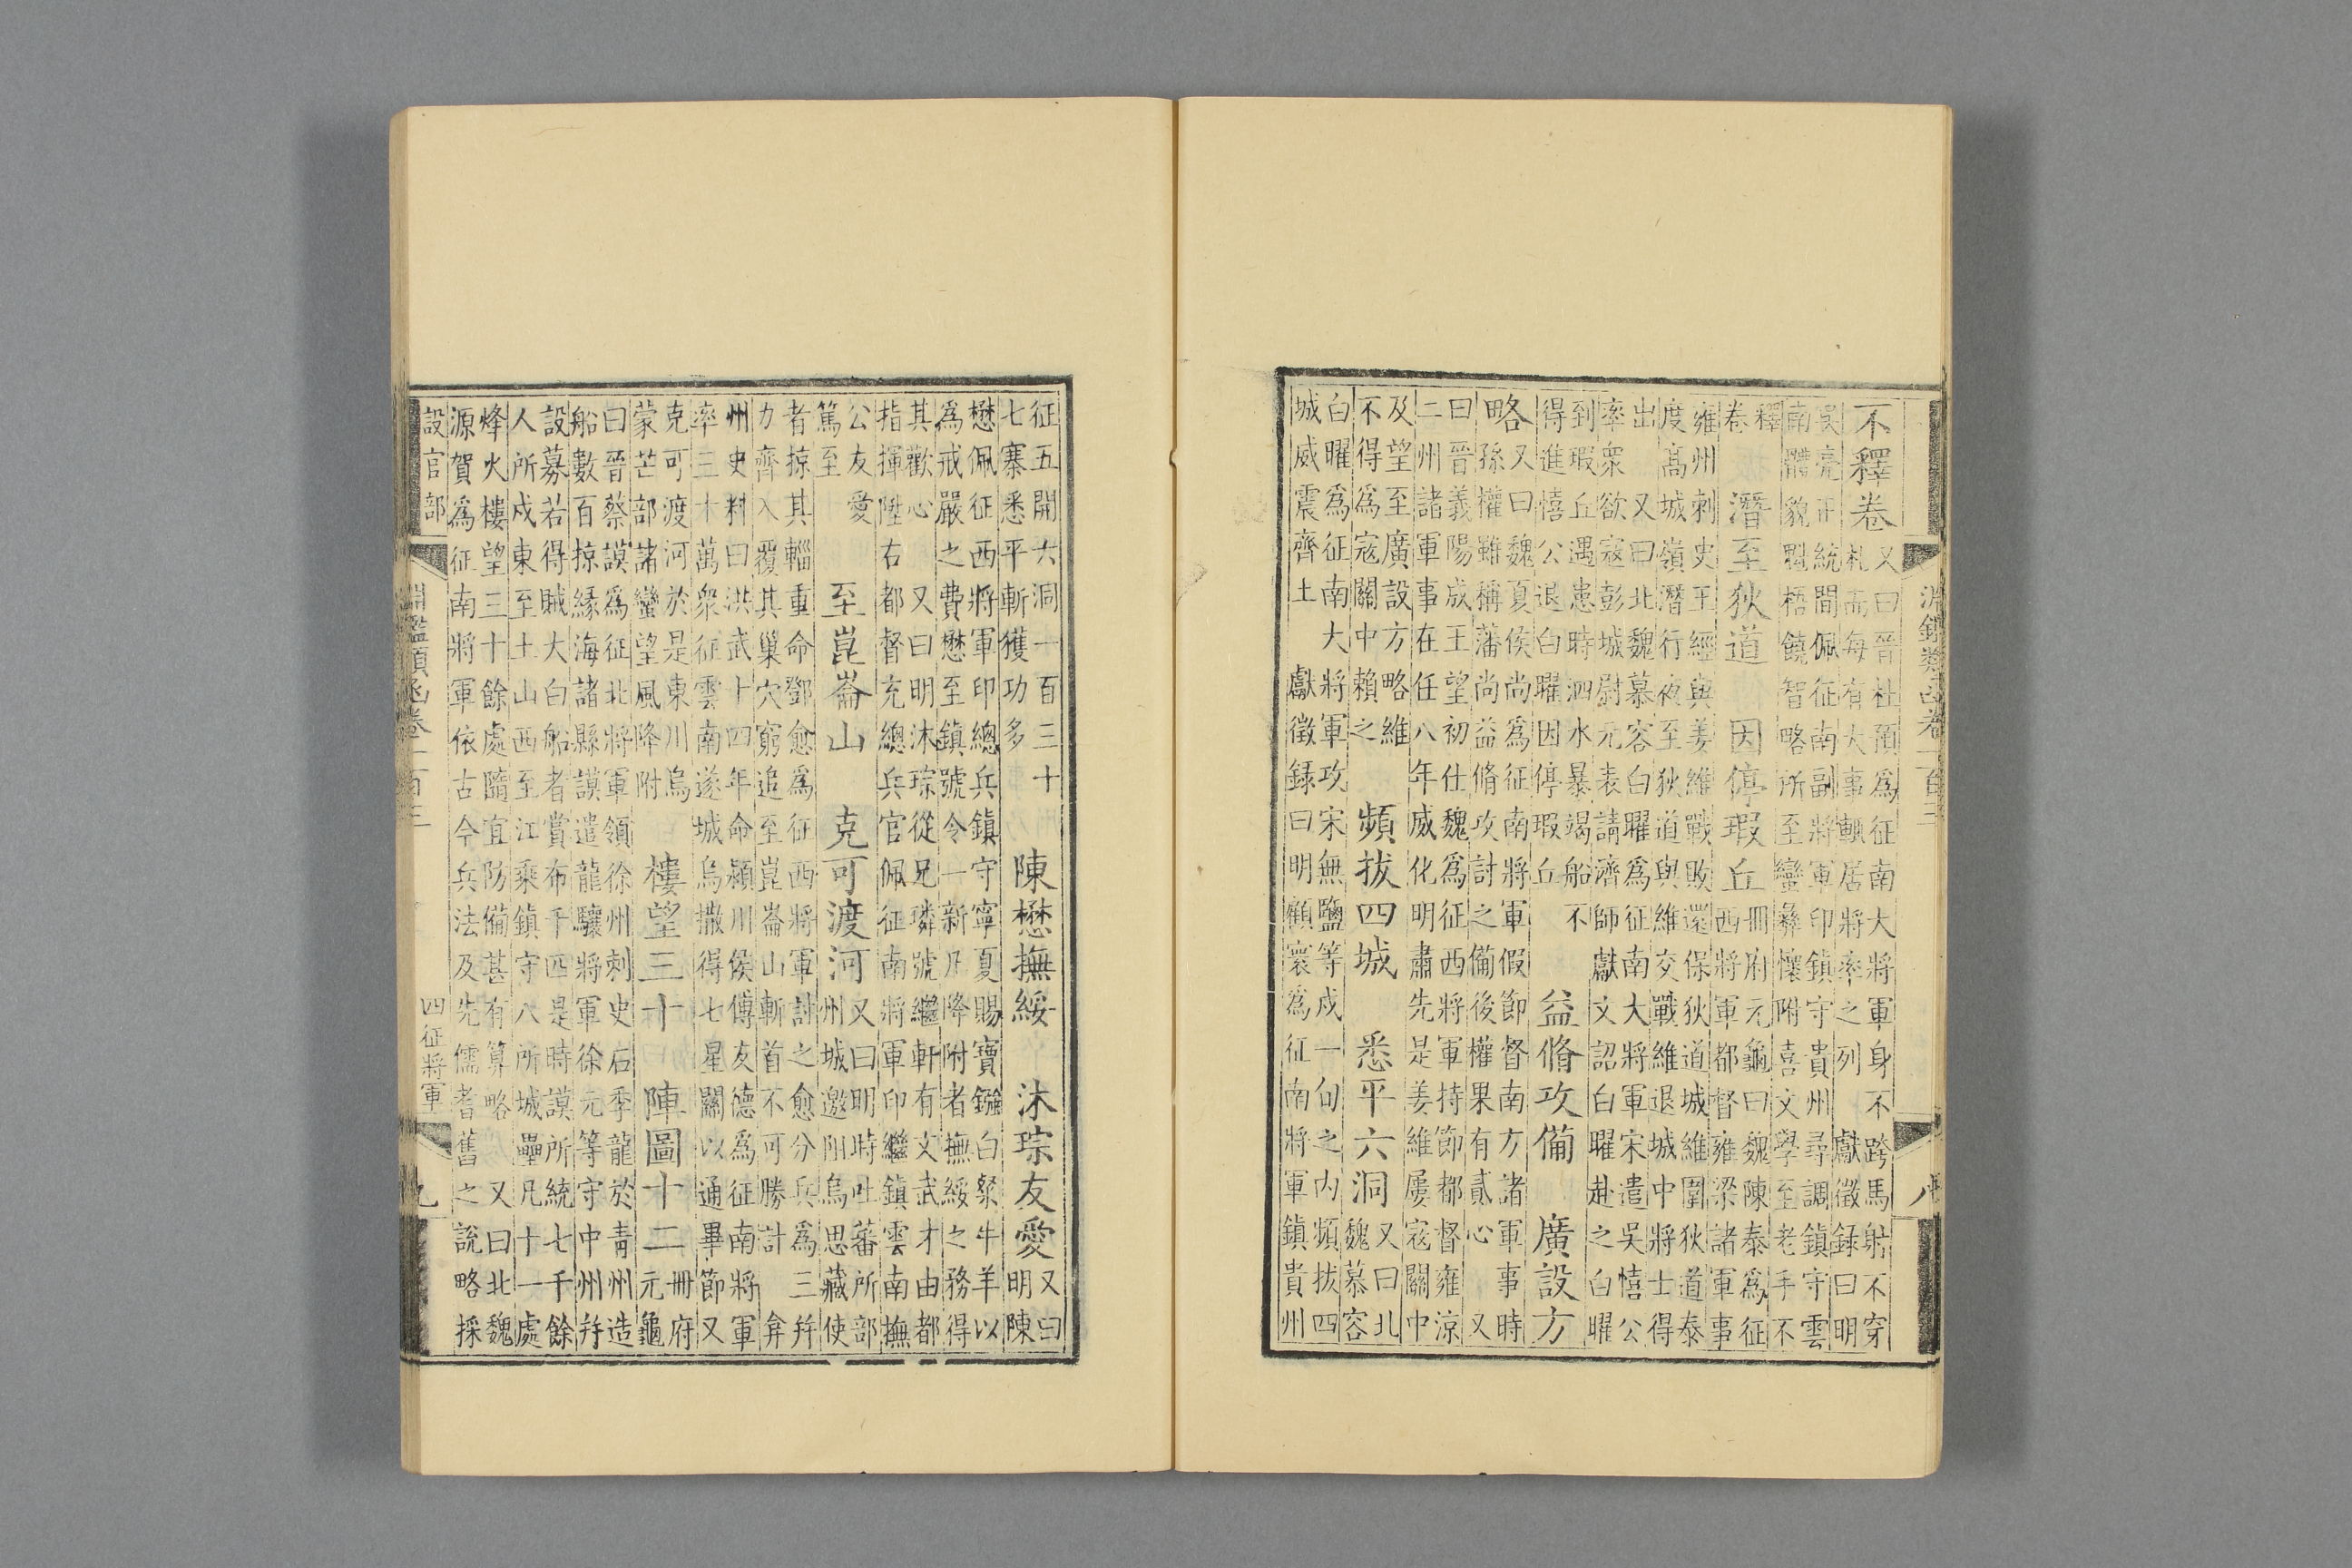 淵鑑類函卷一百三 八
不釋卷
又曰晉杜預爲征南大將軍身不跨馬射不穿
札而每有大事輒居將率之列 獻徵録曰明
吳亮正統間佩征南副將軍印鎮守貴州尋調鎮守雲
南體貌魁梧饒智略所至蠻彝懷附喜文學至老手不
釋
卷
潛至狄道 因停瑕丘
冊府元龜曰魏陳泰爲征
西將軍都督雍梁諸軍事
雍州刺史王經與姜維戰敗還保狄道城維圍狄道泰
度高城嶺潛行夜至狄道與維交戰維退城中將士得
出 又曰北魏慕容白曜爲征南大將軍宋遣吳憘公
率衆欲寇彭城尉元表請濟師獻文詔白曜赴之白曜
到瑕丘遇患時泗水暴竭船不
得進憘公退白曜因停瑕丘
益脩攻備 廣設方
略
又曰魏夏侯尚爲征南將軍假節督南方諸軍事時
孫權雖稱藩尚益脩攻討之備後權果有貳心 又
曰晉義陽成王望初仕魏爲征西將軍持節都督雍涼
二州諸軍事在任八年威化明肅先是姜維屢寇關中
及望至廣設方略維
不得爲寇關中賴之
頻拔四城 悉平六洞
又曰北
魏慕容
白曜爲征南大將軍攻宋無鹽等戍一旬之内頻拔四
城威震齊土 獻徵録曰明顧寰爲征南將軍鎮貴州
征五開六洞一百三十
七寨悉平斬獲功多
陳懋撫綏 沐琮友愛
又曰
明陳
懋佩征西將軍印總兵鎮守寧夏賜寶鏹白粲牛羊以
爲戒嚴之費懋至鎮號令一新凡降附者撫綏之務得
其歡心 又曰明沐琮從兄璘號繼軒有文武才由都
指揮陞右都督充總兵官佩征南將軍印繼鎮雲南撫
公友愛
篤至
至崑崙山 克可渡河
又曰明時吐蕃所部
州城邀阻烏思藏使
者掠其輜重命鄧愈爲征西將軍討之愈分兵爲三并
力齊入覆其巢穴窮追至崑崙山斬首不可勝計 弇
州史料曰洪武十四年命潁川侯傅友德爲征南將軍
率三十萬衆征雲南遂城烏撒得七星關以通畢節又
克可渡河於是東川烏
蒙芒部諸蠻望風降附
樓望三十 陣圖十二
冊府
元龜
曰晉蔡謨爲征北將軍領徐州刺史石季龍於青州造
船數百掠緣海諸縣謨遣龍驤將軍徐元等守中州并
設募若得賊大白船者賞布千匹是時謨所統七千餘
人所戍東至土山西至江乘鎮守八所城壘凡十一處
烽火樓望三十餘處隨宜防備甚有算略 又曰北魏
源賀爲征南將軍依古今兵法及先儒耆舊之說略採
設官部 淵鑑類函卷一百三 四征將軍 九